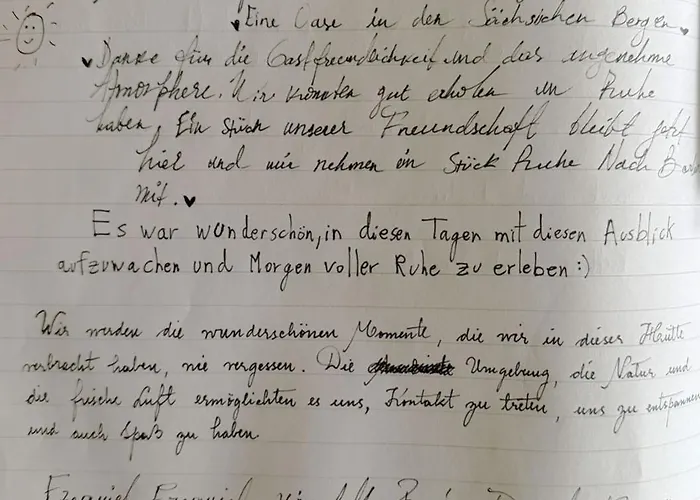 Eine Oase in den Sächsischen Bergen
Danke für die Gastfreundlichkeit und das angenehme
Atmosphere. Wir konnten gut erholen un Ruhe
haben, Ein Stück unserer Freundschaft bleibt jetzt
hier und wir nehmen ein Stück Ruhe Nach
mit.
Es war wunderschön, in diesen Tagen mit diesen Ausblick
aufzuwachen und Morgen voller Ruhe zu erleben :)
Wir werden die wunderschönen Momente, die wir in dieser Hütte
verbracht haben, nie vergessen. Die Umgebung, die Natur und
die frische Luft ermöglichten es uns, Kontakt zu treten, uns zu entspannen
und auch Spaß zu haben.